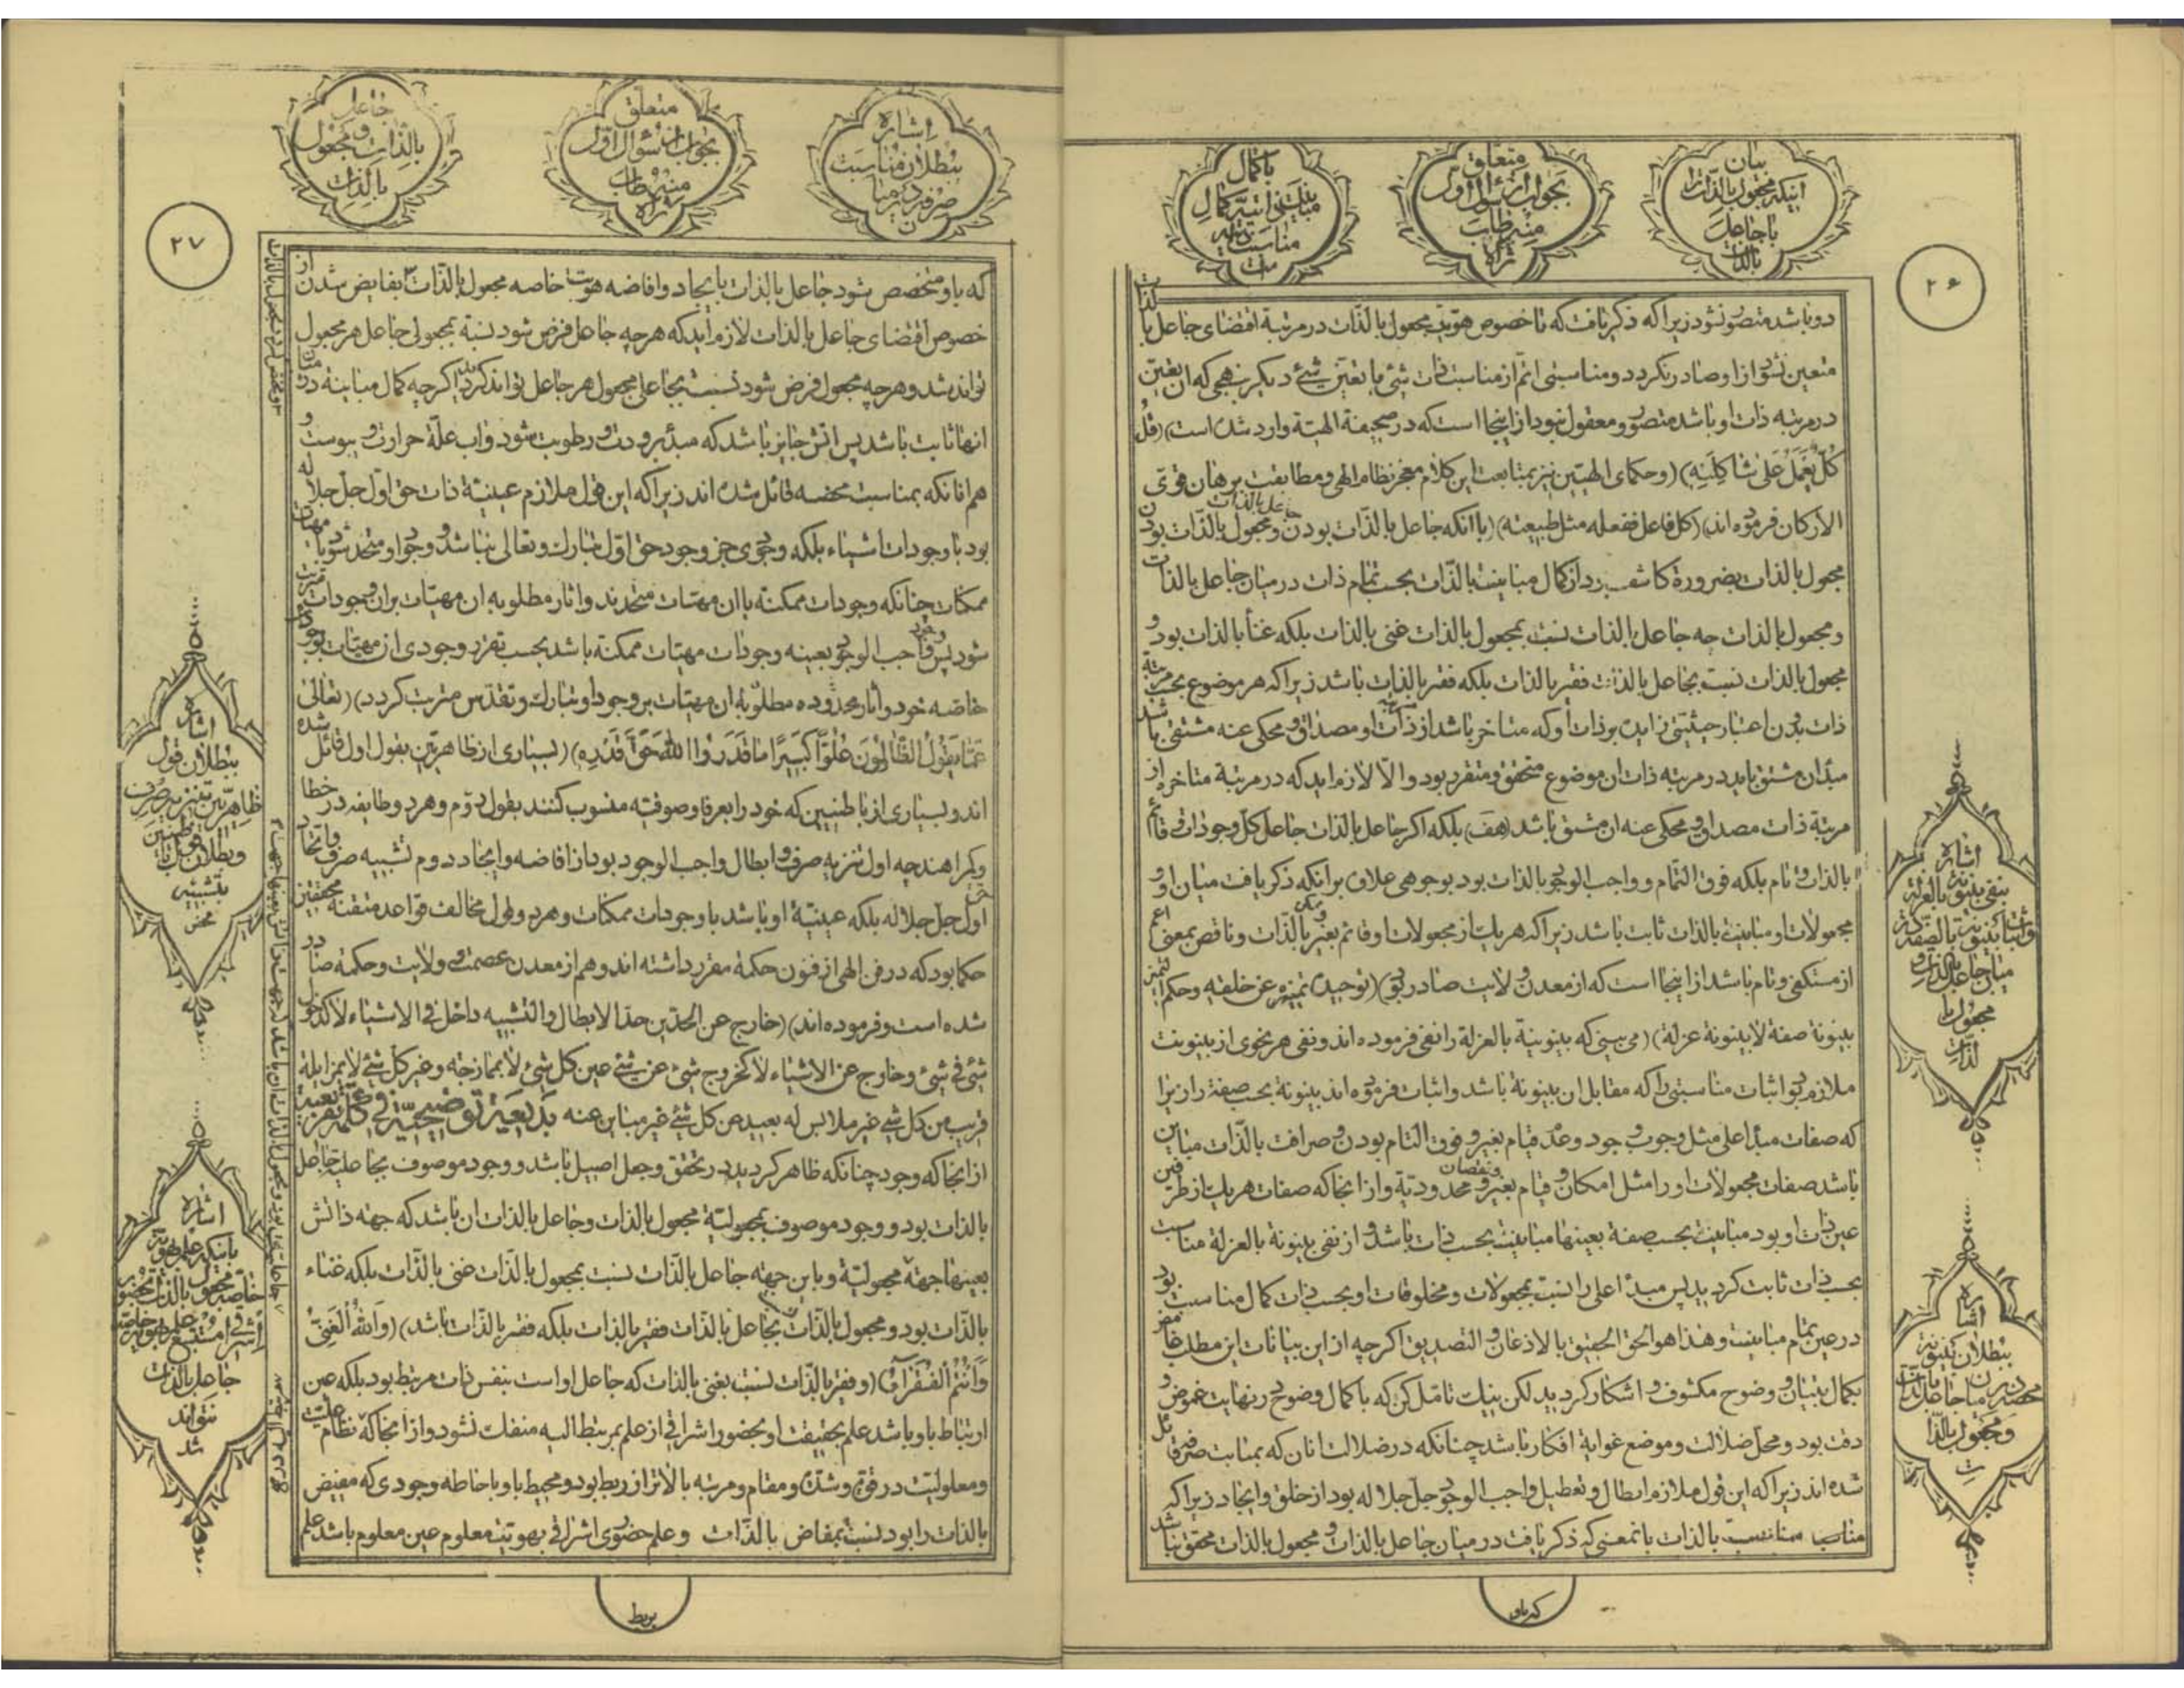 بیان
اینکه مجعول بالذات را
با جاعل
بالذات
متعلق
بجواب از سؤال اول
منه طاب
ثراه
با کمال
مباینت ذاتیه کمال
مناسبت ذاتیه
است
۲۶
دو باشد متصور نشود زیرا که ذکر یافت که تا خصوص هویت مجعول بالذات در مرتبهٔ اقتضای جاعل بالذات
متعین نشود از او صادر نگردد و مناسبتی اتم از مناسبت ذات شیٔ با تعین شیٔ دیگر بنهجی که آن تعین
در مرتبه ذات او باشد متصور و معقول نبود از اینجا است که در صحیفهٔ الهیة وارد شده است (قل
کل یعمل علی شاکلته) (و حکمای الهیین نیز بمتابعت این کلام معجز نظام الهی و مطابقت برهان قوی
الارکان فرموده اند) (کل فاعل ففعله مثل طبیعته) (با آنکه جاعل بالذات بودن جاعل بالذات و مجعول بالذات بودن
مجعول بالذات بضرورة کاشف بود از کمال مباینت بالذات بحسب تمام ذات در میان جاعل بالذات
و مجعول بالذات چه جاعل بالذات نسبت بمجعول بالذات غنی بالذات بلکه غنأ بالذات بود و
مجعول بالذات نسبت بجاعل بالذات فقیر بالذات بلکه فقر بالذات باشد زیرا که هر موضوع بحسب مرتبة
ذات بدون اعتبار حیثیتی زاید بر ذات او که متاخر باشد از مرتبه ذات او مصداق و محکی عنه مشتقی باشد
مبدأ آن مشتق باید در مرتبه ذات آن موضوع متحقق و متقرر بود و الا لازم اید که در مرتبهٔ متاخره از
مرتبهٔ ذات مصداق و محکی عنه آن مشتق باشد (هف) بلکه اگر جاعل بالذات جاعل کل وجودات قائم
بالذات و تام بلکه فوق التمام و واجب الوجود بالذات بود بوجوهی علاوه بر آنکه ذکر یافت میان او و
مجعولات او مباینت بالذات ثابت باشد زیرا که هر یک از مجعولات او قائم بغیر و ممکن بالذات و ناقص بمعنی اعم
از مستکفی و تام باشد از اینجا است که از معدن ولایت صادر بود) (توحیده تمییزه عن خلقه و حکم التمییز
بینونة صفة لا بینونة عزلة) (می بینی که بینونیة بالعزلة را نفی فرموده اند و نفی هر نحوی از بینونت
ملازم بود اثبات مناسبتی را که مقابل آن بینونة باشد و اثبات فرموده اند بینونة بحسب صفة را زیرا
که صفات مبدأ اعلی مثل وجوب وجود و عدم قیام بغیر و فوق التمام بودن و صرافت بالذات مباین
باشد صفات مجعولات او را مثل امکان و قیام بغیر و نقصان و محدودیة و از انجا که صفات هر یک از طرفین
عین ذات او بود مباینت بحسب صفة بعینها مباینت بحسب ذات باشد و از نفی بینونة بالعزلة مناسبت
بحسب ذات ثابت گردید پس مبدأ اعلی را نسبت بمجعولات و مخلوقات او بحسب ذات کمال مناسبت بود
در عین تمام مباینت و هذا هو الحق الحقیق بالاذعان و التصدیق اگر چه از این بیانات این مطلب غامض
بکمال بتیان و وضوح مکشوف و اشکار گردید لکن نیک تامل کن که با کمال وضوح در نهایت غموض و
دقت بود و محل ضلالت و موضع غوایة افکار باشد چنانکه در ضلالت انان که بمباینت صرفه قائل
شده اند زیرا که این قول ملازم ابطال و تعطیل واجب الوجود جل جلاله بود از خلق و ایجاد زیرا که
مناسبت بالذات بانمعنی که ذکر یافت در میان جاعل بالذات و مجعول بالذات محقق نباشد
که باو
اشاره
بنفی بینونة بالعزلة
و اثبات بینونة بالصفة در
میان جاعل بالذات و
مجعول با
لذات
اشاره
ببطلان بینونة
محضه در میان جاعل بالذات
و مجعول بالذا
ت
اشاره
ببطلان مناسبت
صرفه در میا
ن
متعلق
بجواب از سؤال اول
منه طاب
ثراه
جاعل
بالذات و مجعول
بالذات
۲۷
که باو متخصص شود جاعل بالذات با یجاد و افاضه هویت خاصه مجعول بالذات بفایض شدن از
خصوص اقتضای جاعل بالذات لازم اید که هر چه جاعل فرض شود نسبة بمجعولی جاعل هر مجعول
تواند شد و هر چه مجعول فرض شود نسبت بجاعلی مجعول هر جاعل تواند گردید اگر چه کمال مباینة در میان
انها ثابت باشد پس اتش جایز باشد که مبدء برودت و رطوبت شود و اب علة حرارت و یبوست و
هم انانکه بمناسبت محضه قائل شده اند زیرا که این قول ملازم عینیة ذات حق اول جل جلاله
بود با وجودات اشیاء بلکه وجودی جز وجود حق اول تبارک و تعالی نباشد و وجود او متحد شود با مهیات
ممکنات چنانکه وجودات ممکنه با ان مهیات متحدند و اثار مطلوبه ان مهیات بر ان وجودات مترتب
شود پس وجود واجب الوجود بعینه وجودات مهیات ممکنة باشد بحسب تفرد وجودی ان مهیات بوجود
خاصه خود و آثار محدوده مطلوبه ان مهیات بر وجود او تبارک و تقدس مترتب گردد) (تعالی
عما یقول الظالمون علوا کبیرا ما قدروا الله حق قدره) (بسیاری از ظاهریین بقول اول قائل شده
اند و بسیاری از باطنیین که خود را بعرفا و صوفیه منسوب کنند بقول دوم و هر دو طایفه در خطا
و گمراهند چه اول تنزیه صرف و ابطال واجب الوجود بود از افاضه و ایجاد دوم تشبیه صرف و اتحاد
اول جل جلاله بلکه عینیة او باشد با وجودات ممکنات و هر دو قول مخالف قواعد متقنهٔ محققین
حکما بود که در فن الهی از فنون حکمة مقرر داشته اند و هم از معدن عصمت و ولایت و حکمة صادر
شده است و فرموده اند) (خارج عن الحدین حد الابطال و التشبیه داخل فی الاشیاء لا کدخول
شیٔ فی شیٔ و خارج عن الاشیاء لا کخروج شیٔ عن شیٔ عین کل شیٔ لا بممازجة و غیر کل شیٔ لا بمزایلة
قریب من کل شیٔ غیر ملابس له بعید من کل شیٔ غیر مباین عنه بدیعیة توضیحیة فی
از انجا که وجود چنانکه ظاهر گردید در تحقق و جعل اصیل باشد و وجود موصوف بجاعلیت جاعل
بالذات بود و وجود موصوف بمجعولیة مجعول بالذات و جاعل بالذات ان باشد که جهة ذاتش
بعینها جهة مجعولیة و باین جهة جاعل بالذات نسبت بمجعول بالذات غنی بالذات بلکه غناء
بالذات بود و مجعول بالذات نسبت بجاعل بالذات فقیر بالذات بلکه فقر بالذات باشد) (والله الغنی
و انتم الفقراء) (و فقیر بالذات نسبت بغنی بالذات که جاعل او است بنفس ذات مرتبط بود بلکه عین
ارتباط باو باشد علم بحقیقت او بحضور اشراقی از علم بمرتبط الیه منفک نشود و از انجا که نظام علیت
و معلولیت در قوت و شدت و مقام و مرتبه بالاتر از ربط بود و محیط باو باحاطه وجودی که مفیض
بالذات را بود نسبت بمفاض بالذات و علم حضوری اشراقی بهویت معلوم عین معلوم باشد علم
بربط
اشاره
ببطلان قول
ظاهریین بتنزیه صرف
و بطلان قول باطنیین
بتشبیه
محض
اشاره
باینکه علم بهویة
خاصه مجعول بالذات بحضور
اشراقی
جاعل بالذات
نتواند
شد